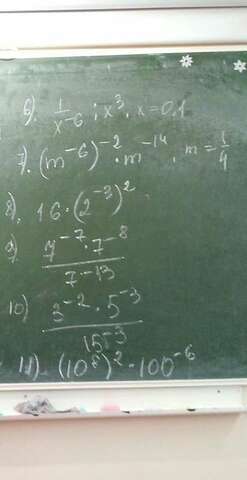 6). 1/x⁻⁶ : x³, x = 0.1
7). (m⁻⁶)⁻² · m⁻¹⁴, m = 1/4
8). 16 · (2⁻³)²
9) 7⁻⁷ · 7⁻⁸ / 7⁻¹³
10) 3⁻² · 5⁻³ / 15⁻³
11). (10⁸)² · 100⁻⁶